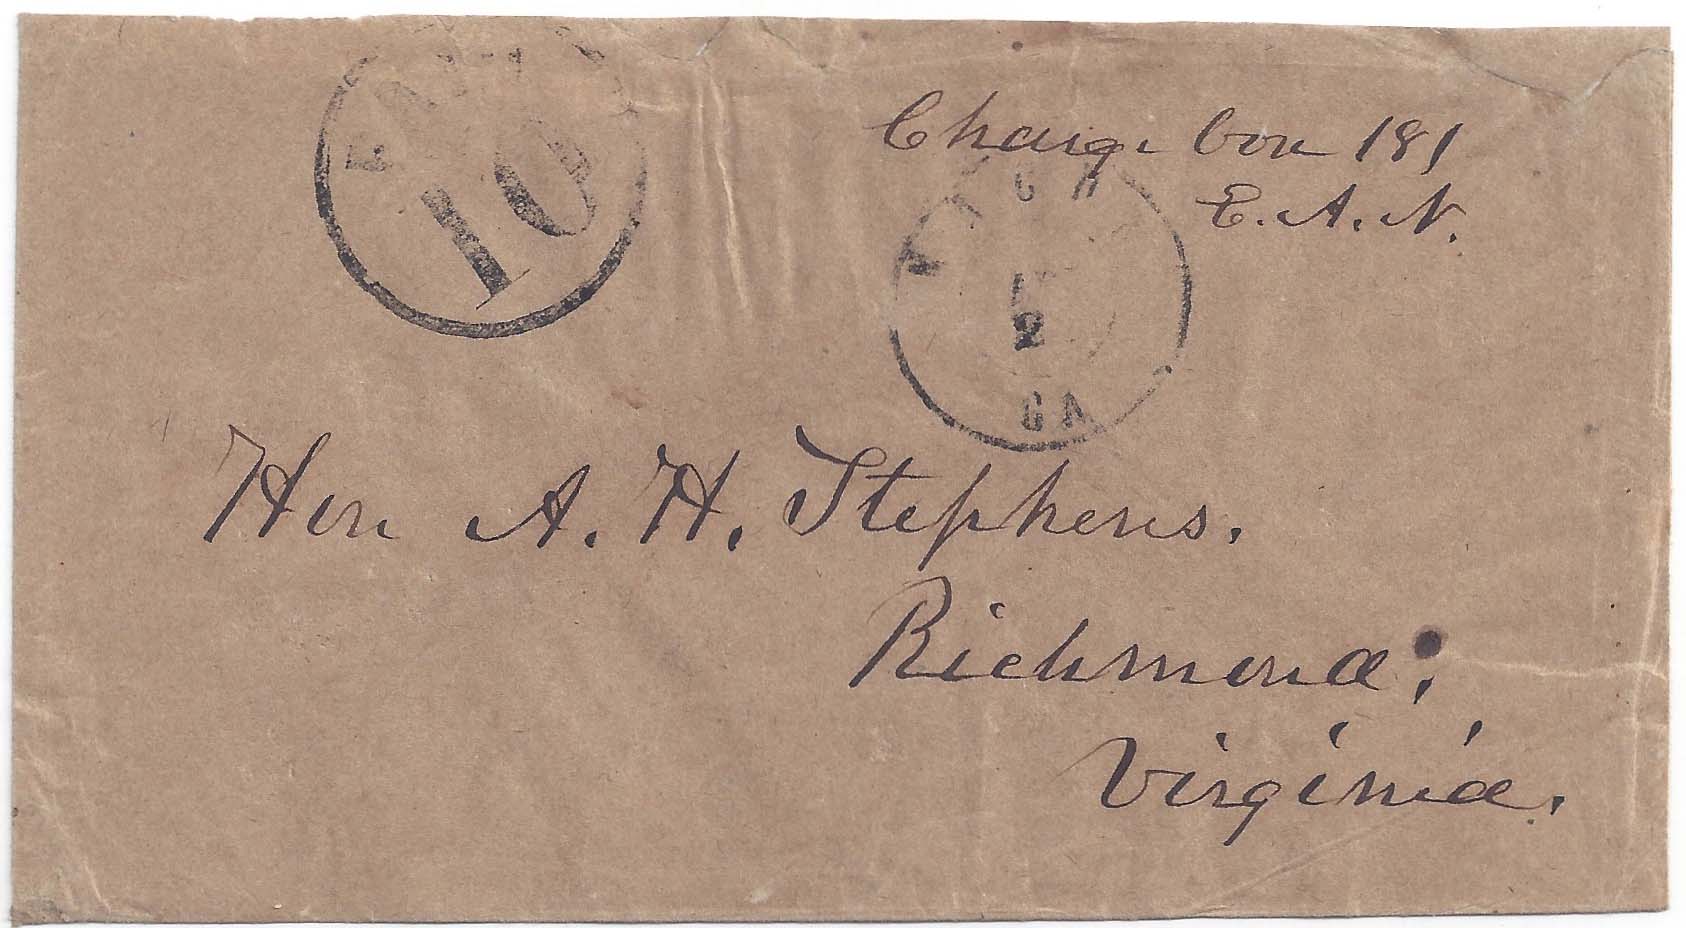 PAID
10
Charge box 181
E. A. N.
2
GA
Hon A. H. Stephens.
Richmond;
Virginia.